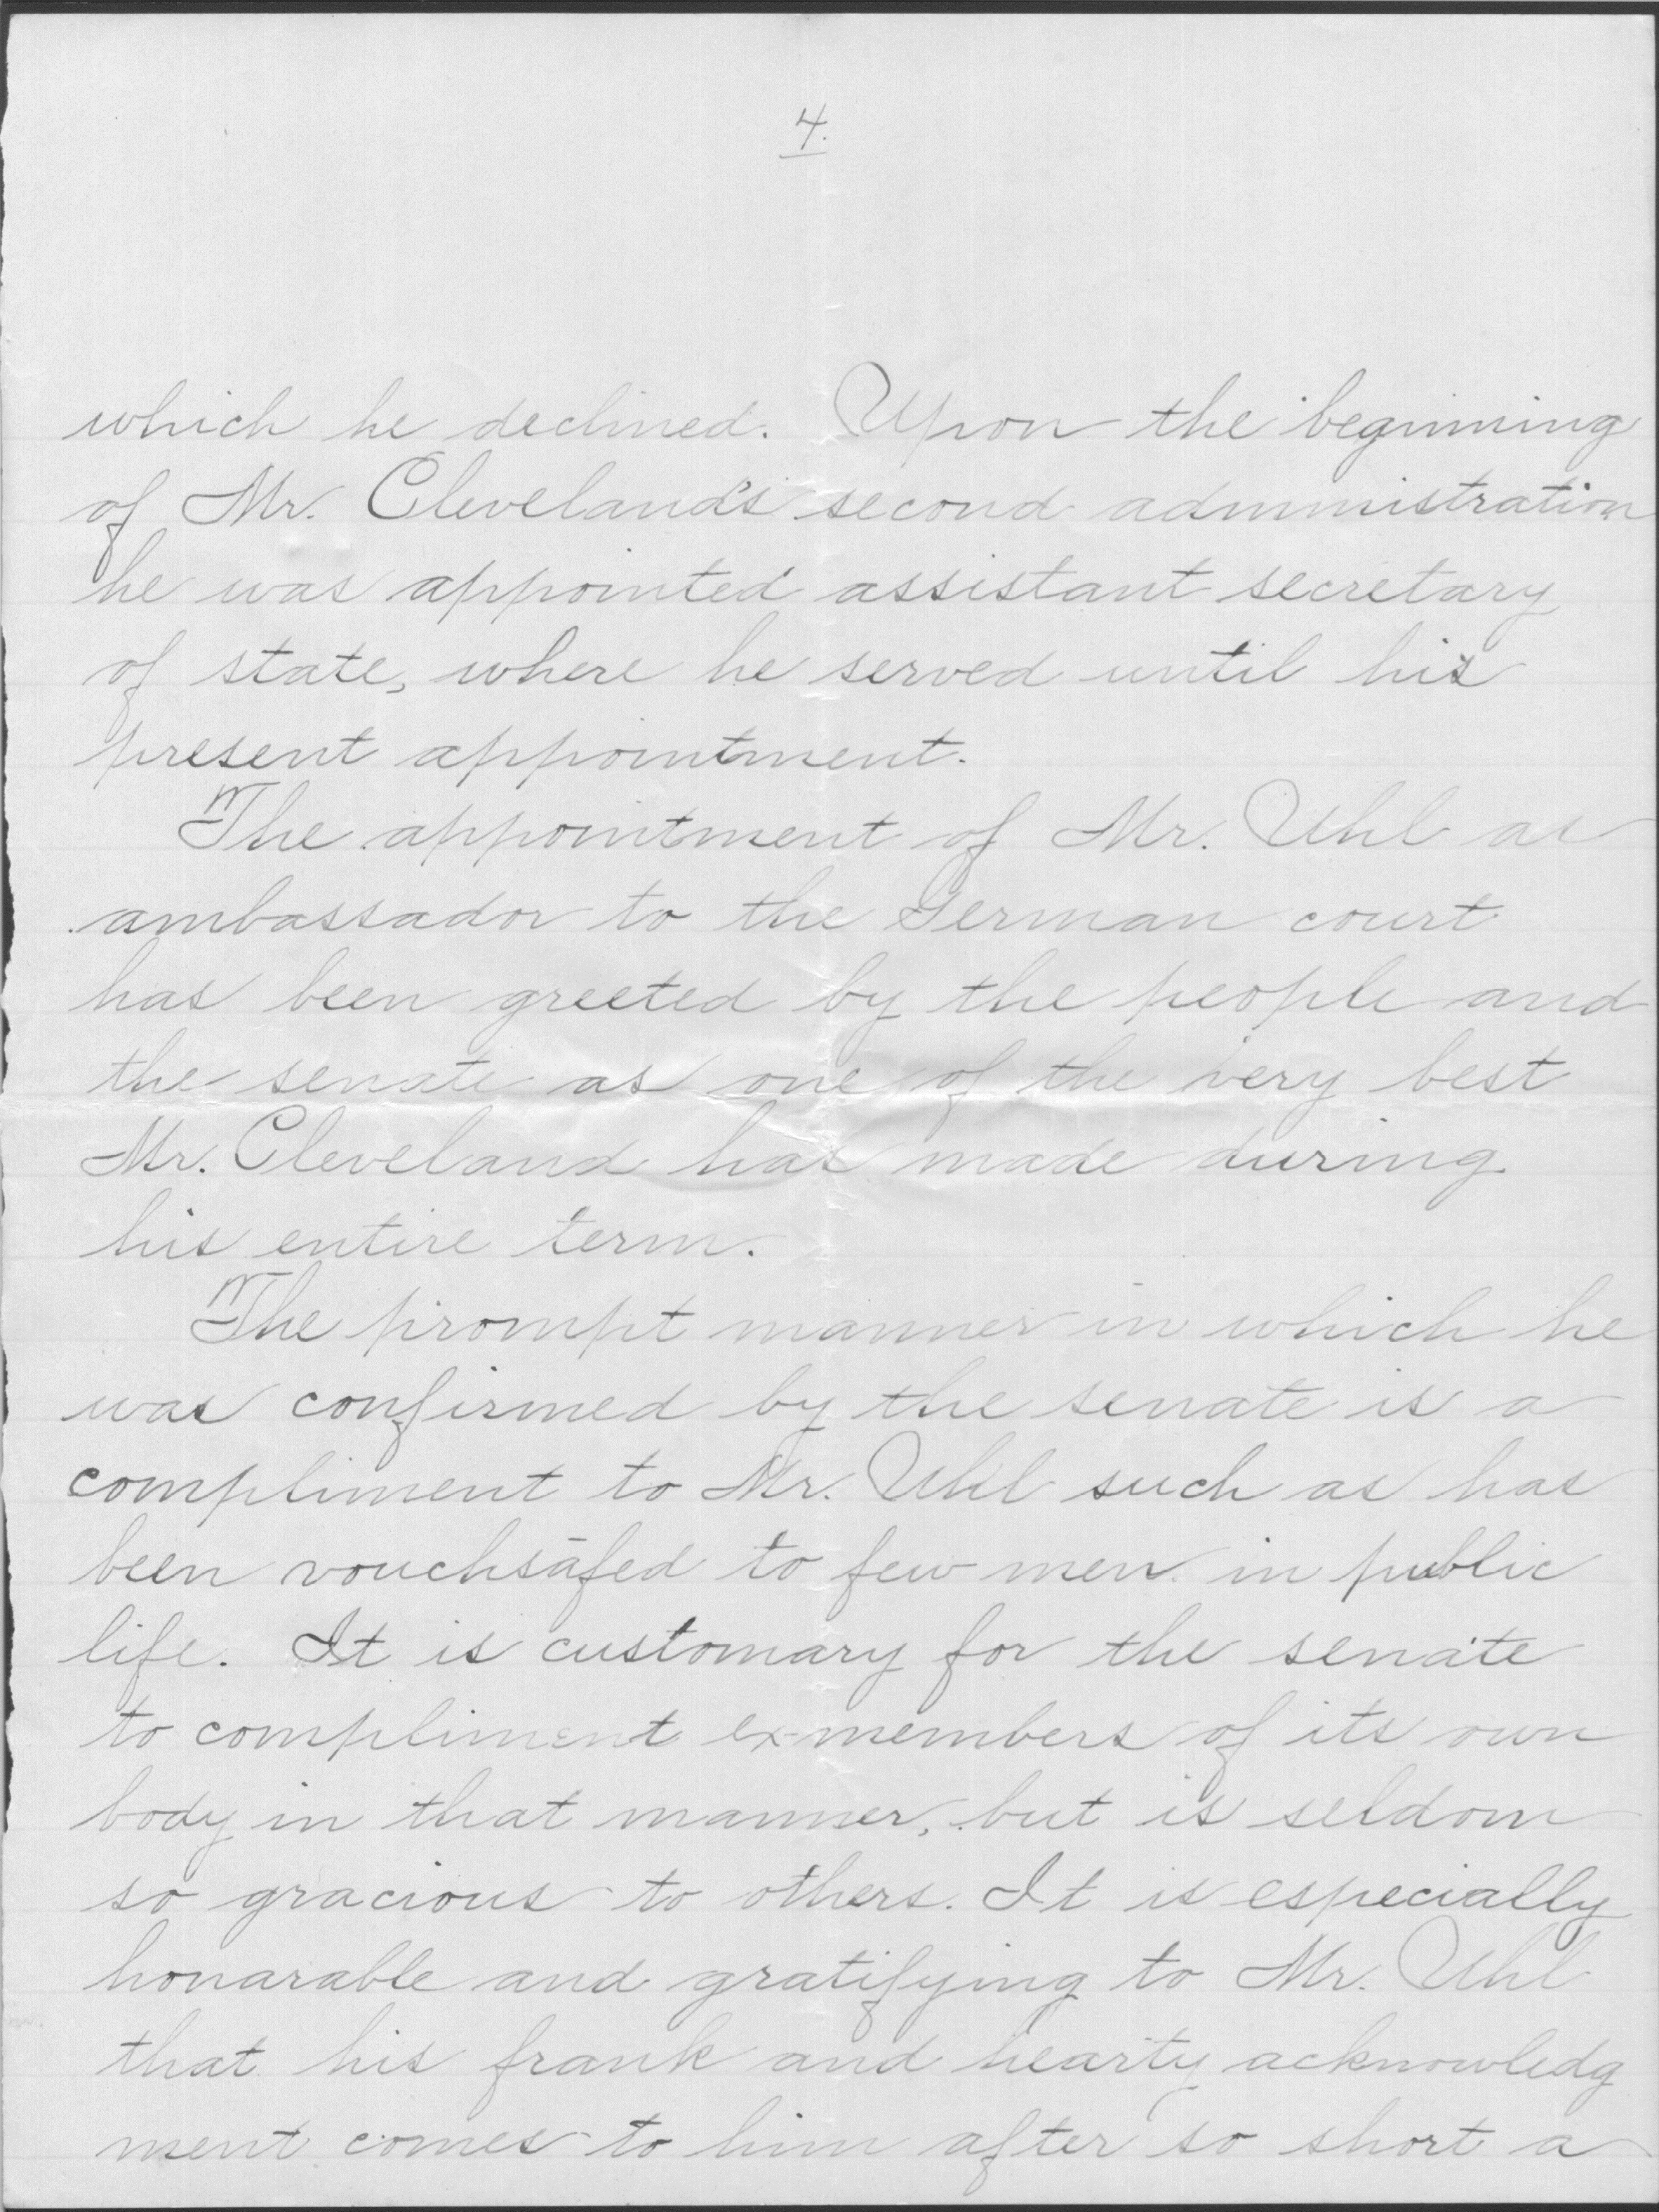 4.
which he declined. Upon the beginning
of Mr. Cleveland's second administration
he was appointed assistant secretary
of state, where he served until his
present appointment.
The appointment of Mr. Uhl as
ambassador to the German court
has been greeted by the people and
the senate as one of the very best
Mr. Cleveland has made during
his entire term.
The prompt manner in which he
was confirmed by the senate is a
compliment to Mr. Uhl such as has
been vouchsafed to few men in public
life. It is customary for the senate
to compliment ex-members of its own
body in that manner, but is seldom
so gracious to others. It is especially
honarable and gratifying to Mr. Uhl
that his frank and hearty acknowledg
ment comes to him after so short a